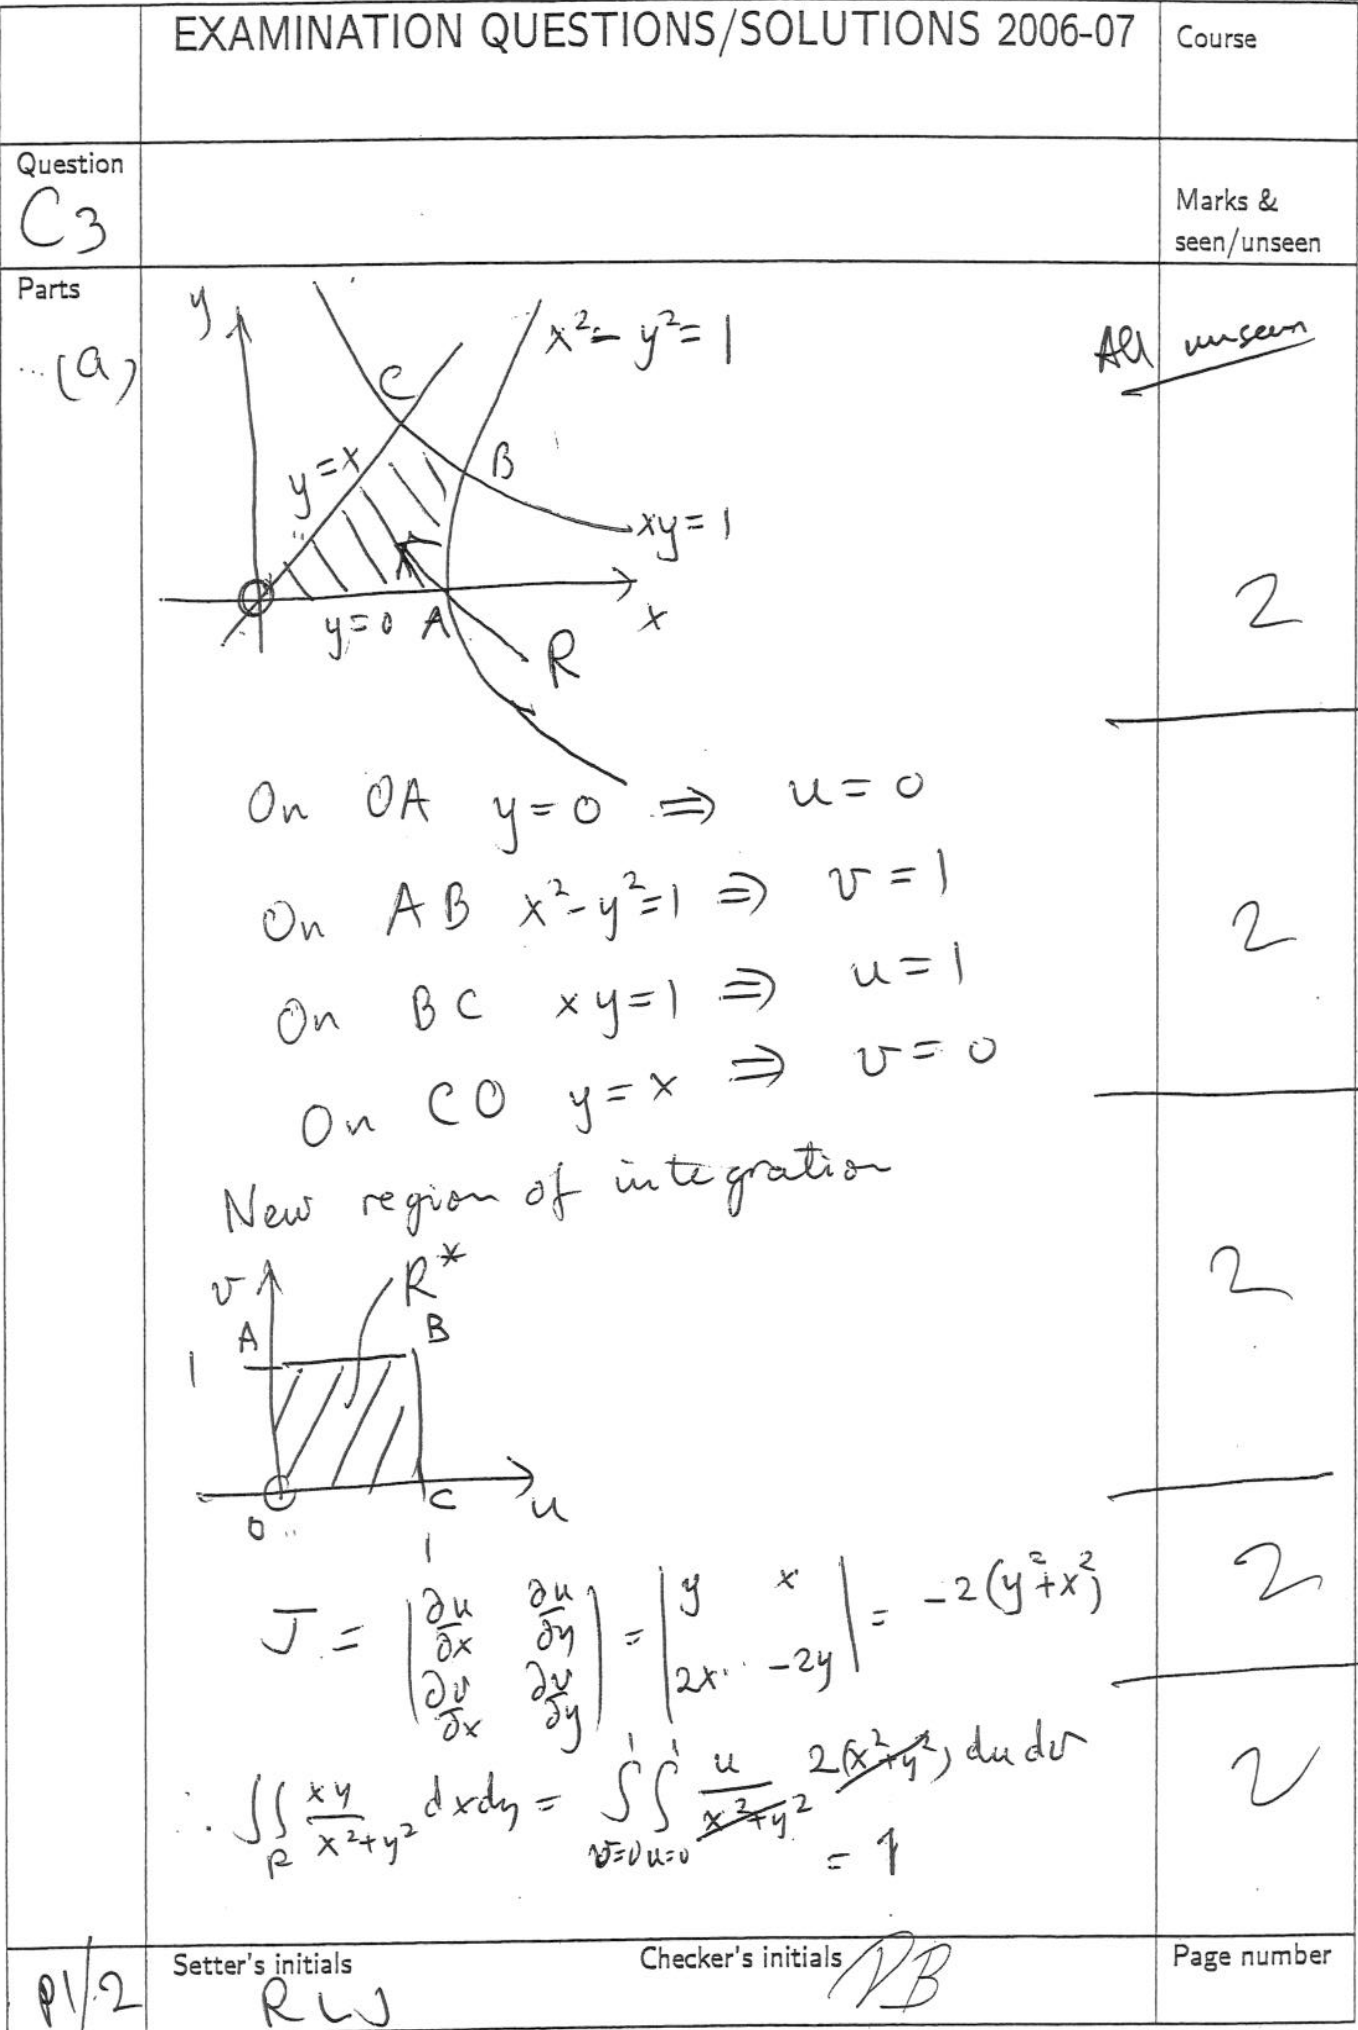 EXAMINATION QUESTIONS/SOLUTIONS 2006-07
Course
Question
C3
Marks &
seen/unseen
Parts
(a)
y
x² - y² = 1
All unseen
C
y = x
B
xy = 1
y = 0
A
x
R
2
On OA y = 0 ⇒ u = 0
On AB x² - y² = 1 ⇒ v = 1
2
On BC xy = 1 ⇒ u = 1
On CO y = x ⇒ v = 0
New region of integration
v
R*
2
A
B
1
0
C
u
1
J = | ∂u/∂x ∂u/∂y ; ∂v/∂x ∂v/∂y | = | y x ; 2x -2y | = -2(y² + x²)
2
∴ ∫∫_R xy/(x² + y²) dxdy = ∫_{v=0}^{1} ∫_{u=0}^{1} u/(x² + y²) 2(x² + y²) du dv
2
= 1
Setter's initials
Checker's initials
Page number
P1/2
RLJ
DB